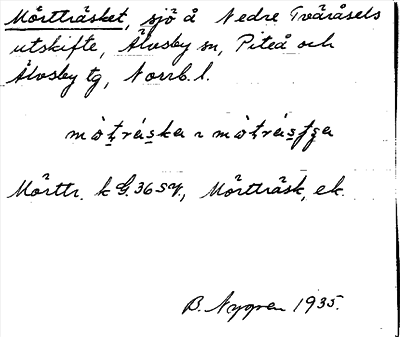 Mörtträsket, sjö å Nedre Tväråsels
utskifte, Älvsby sn, Piteå och
Älvsby tg, Norrb. l.
Mörttr. k G. 36 SV., Mörtträsk, ek.
B. Nygren 1935.